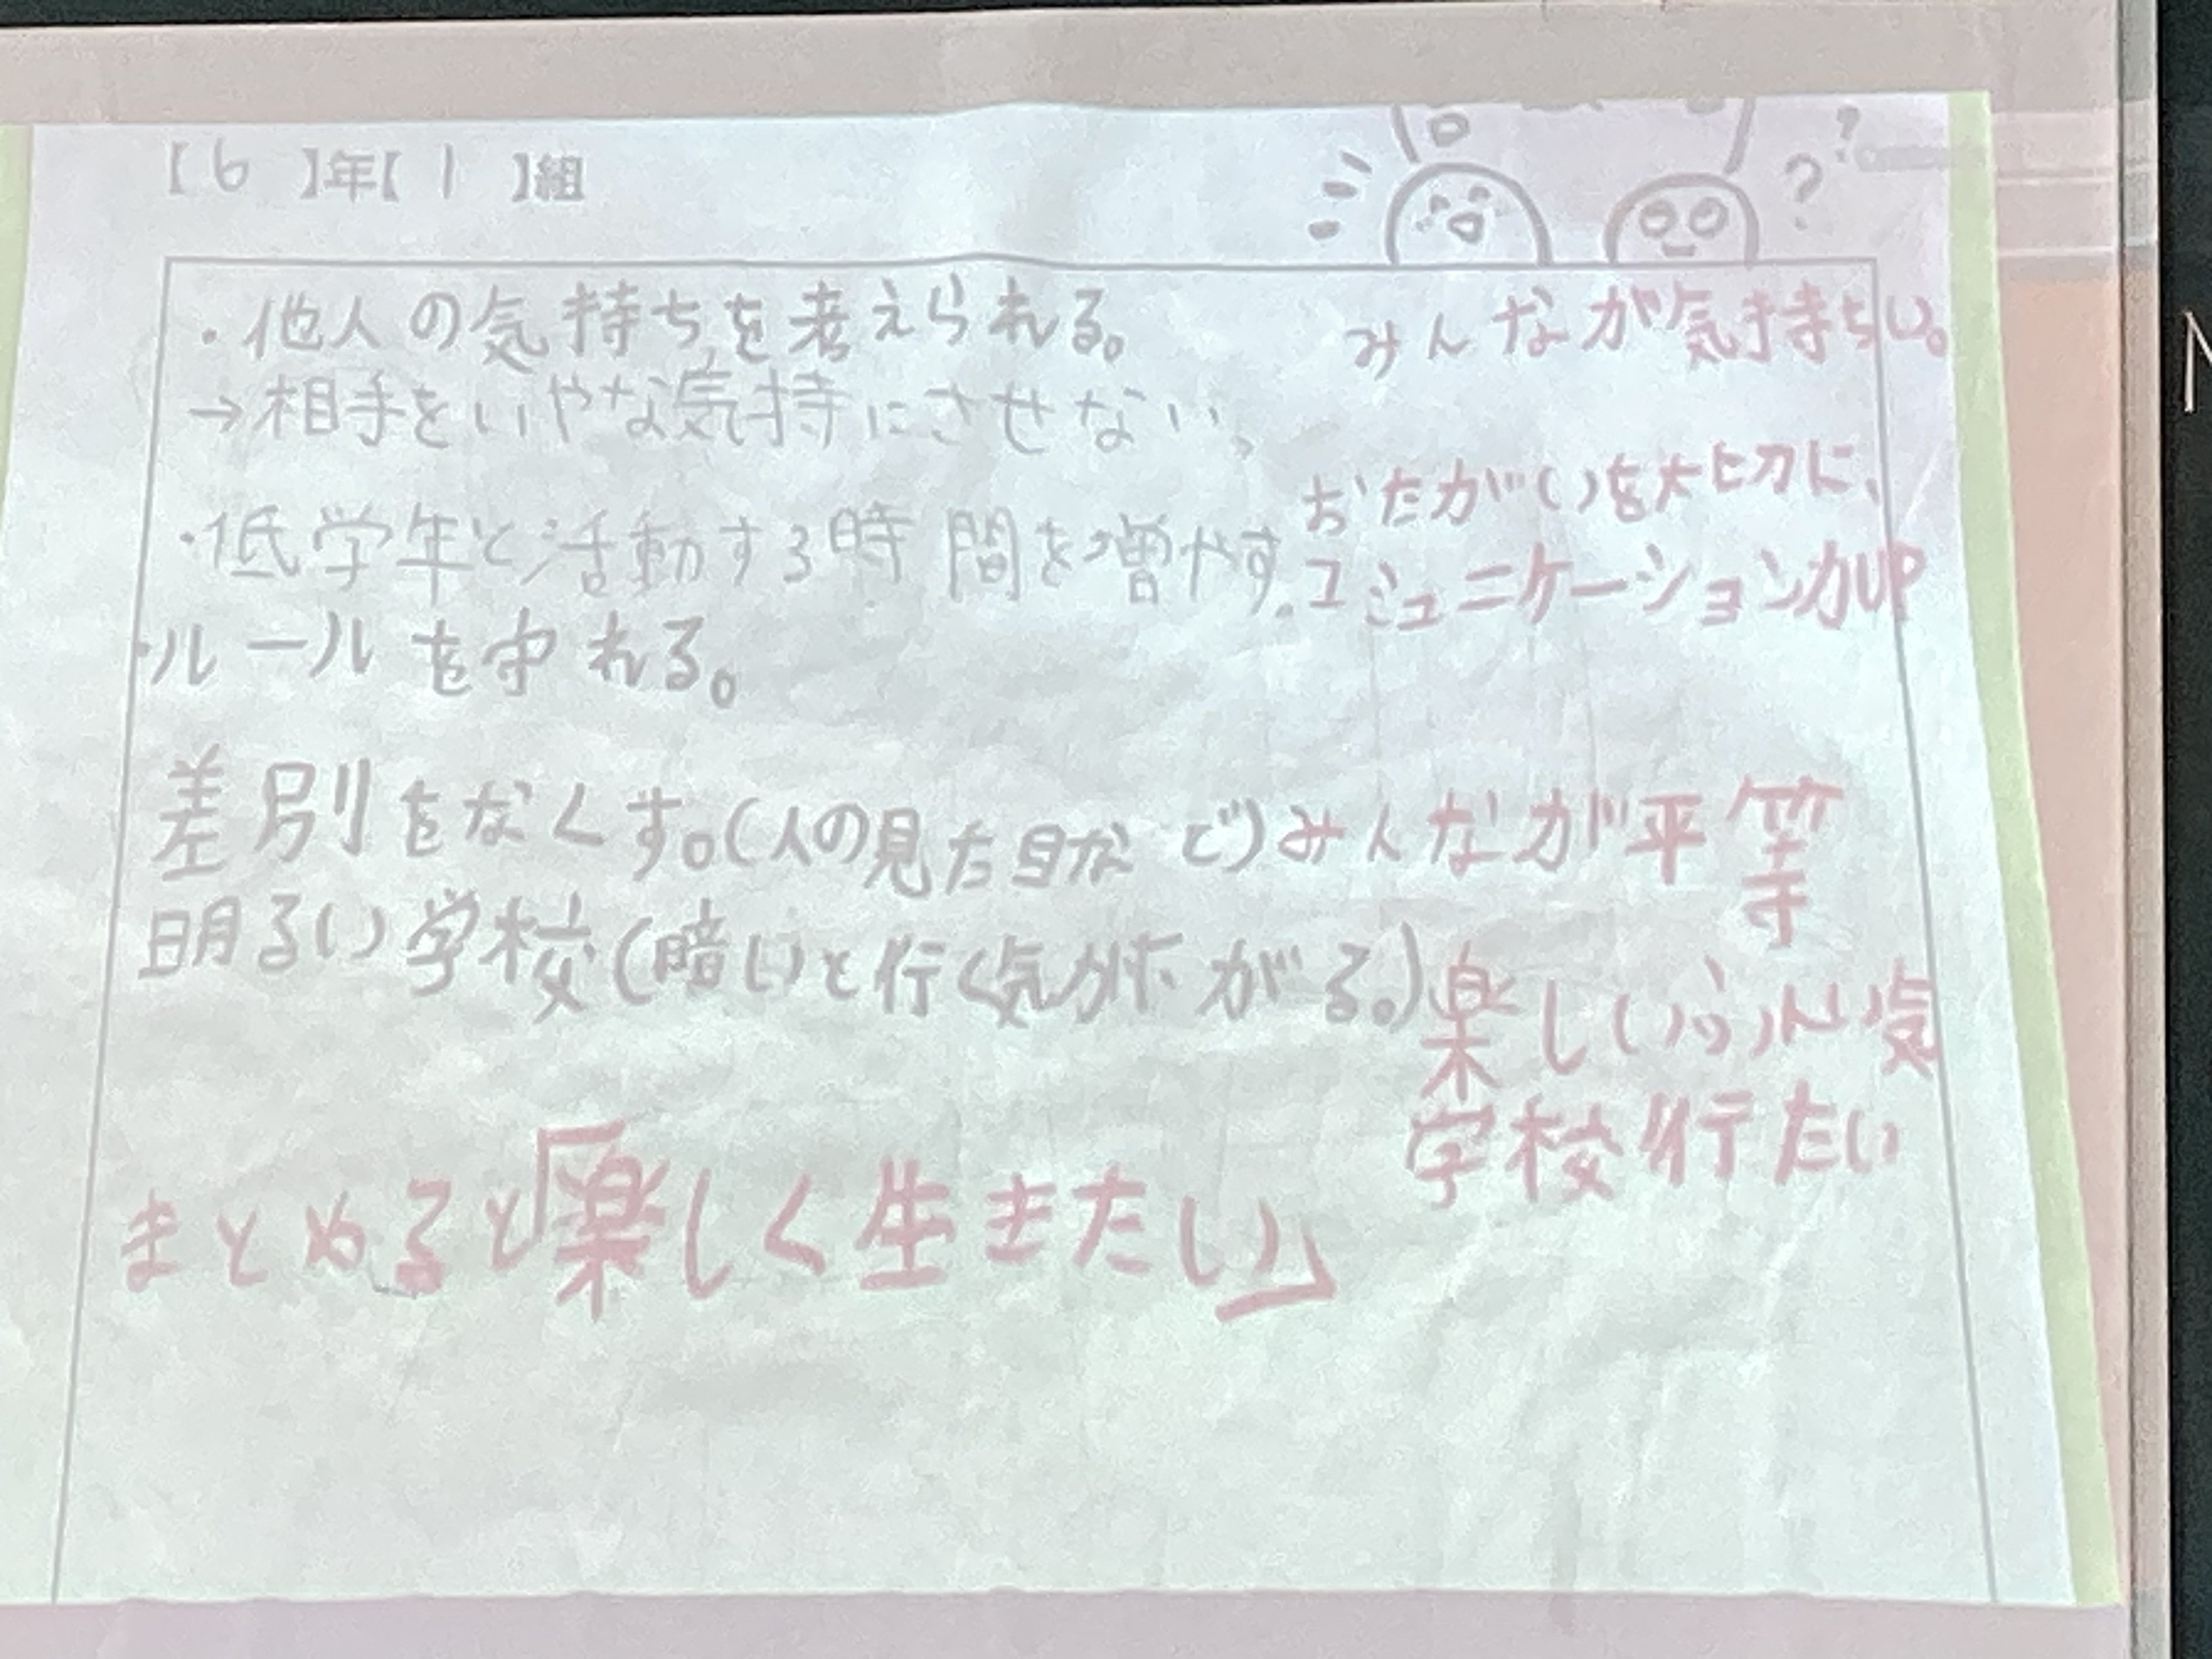 【6】年【1】組
・他人の気持ちを考えられる。
みんなが気持ちい。
→相手をいやな気持にさせない、
おたがいを大切に、
・低学年と活動する時間を増やす.
コミュニケーション力UP
・ルールを守れる。
差別をなくす。(人の見た目など)
みんなが平等
明るい学校(暗いと行く気がなくなる。)
楽しいふんい気
学校行たい
まとめると「楽しく生きたい」